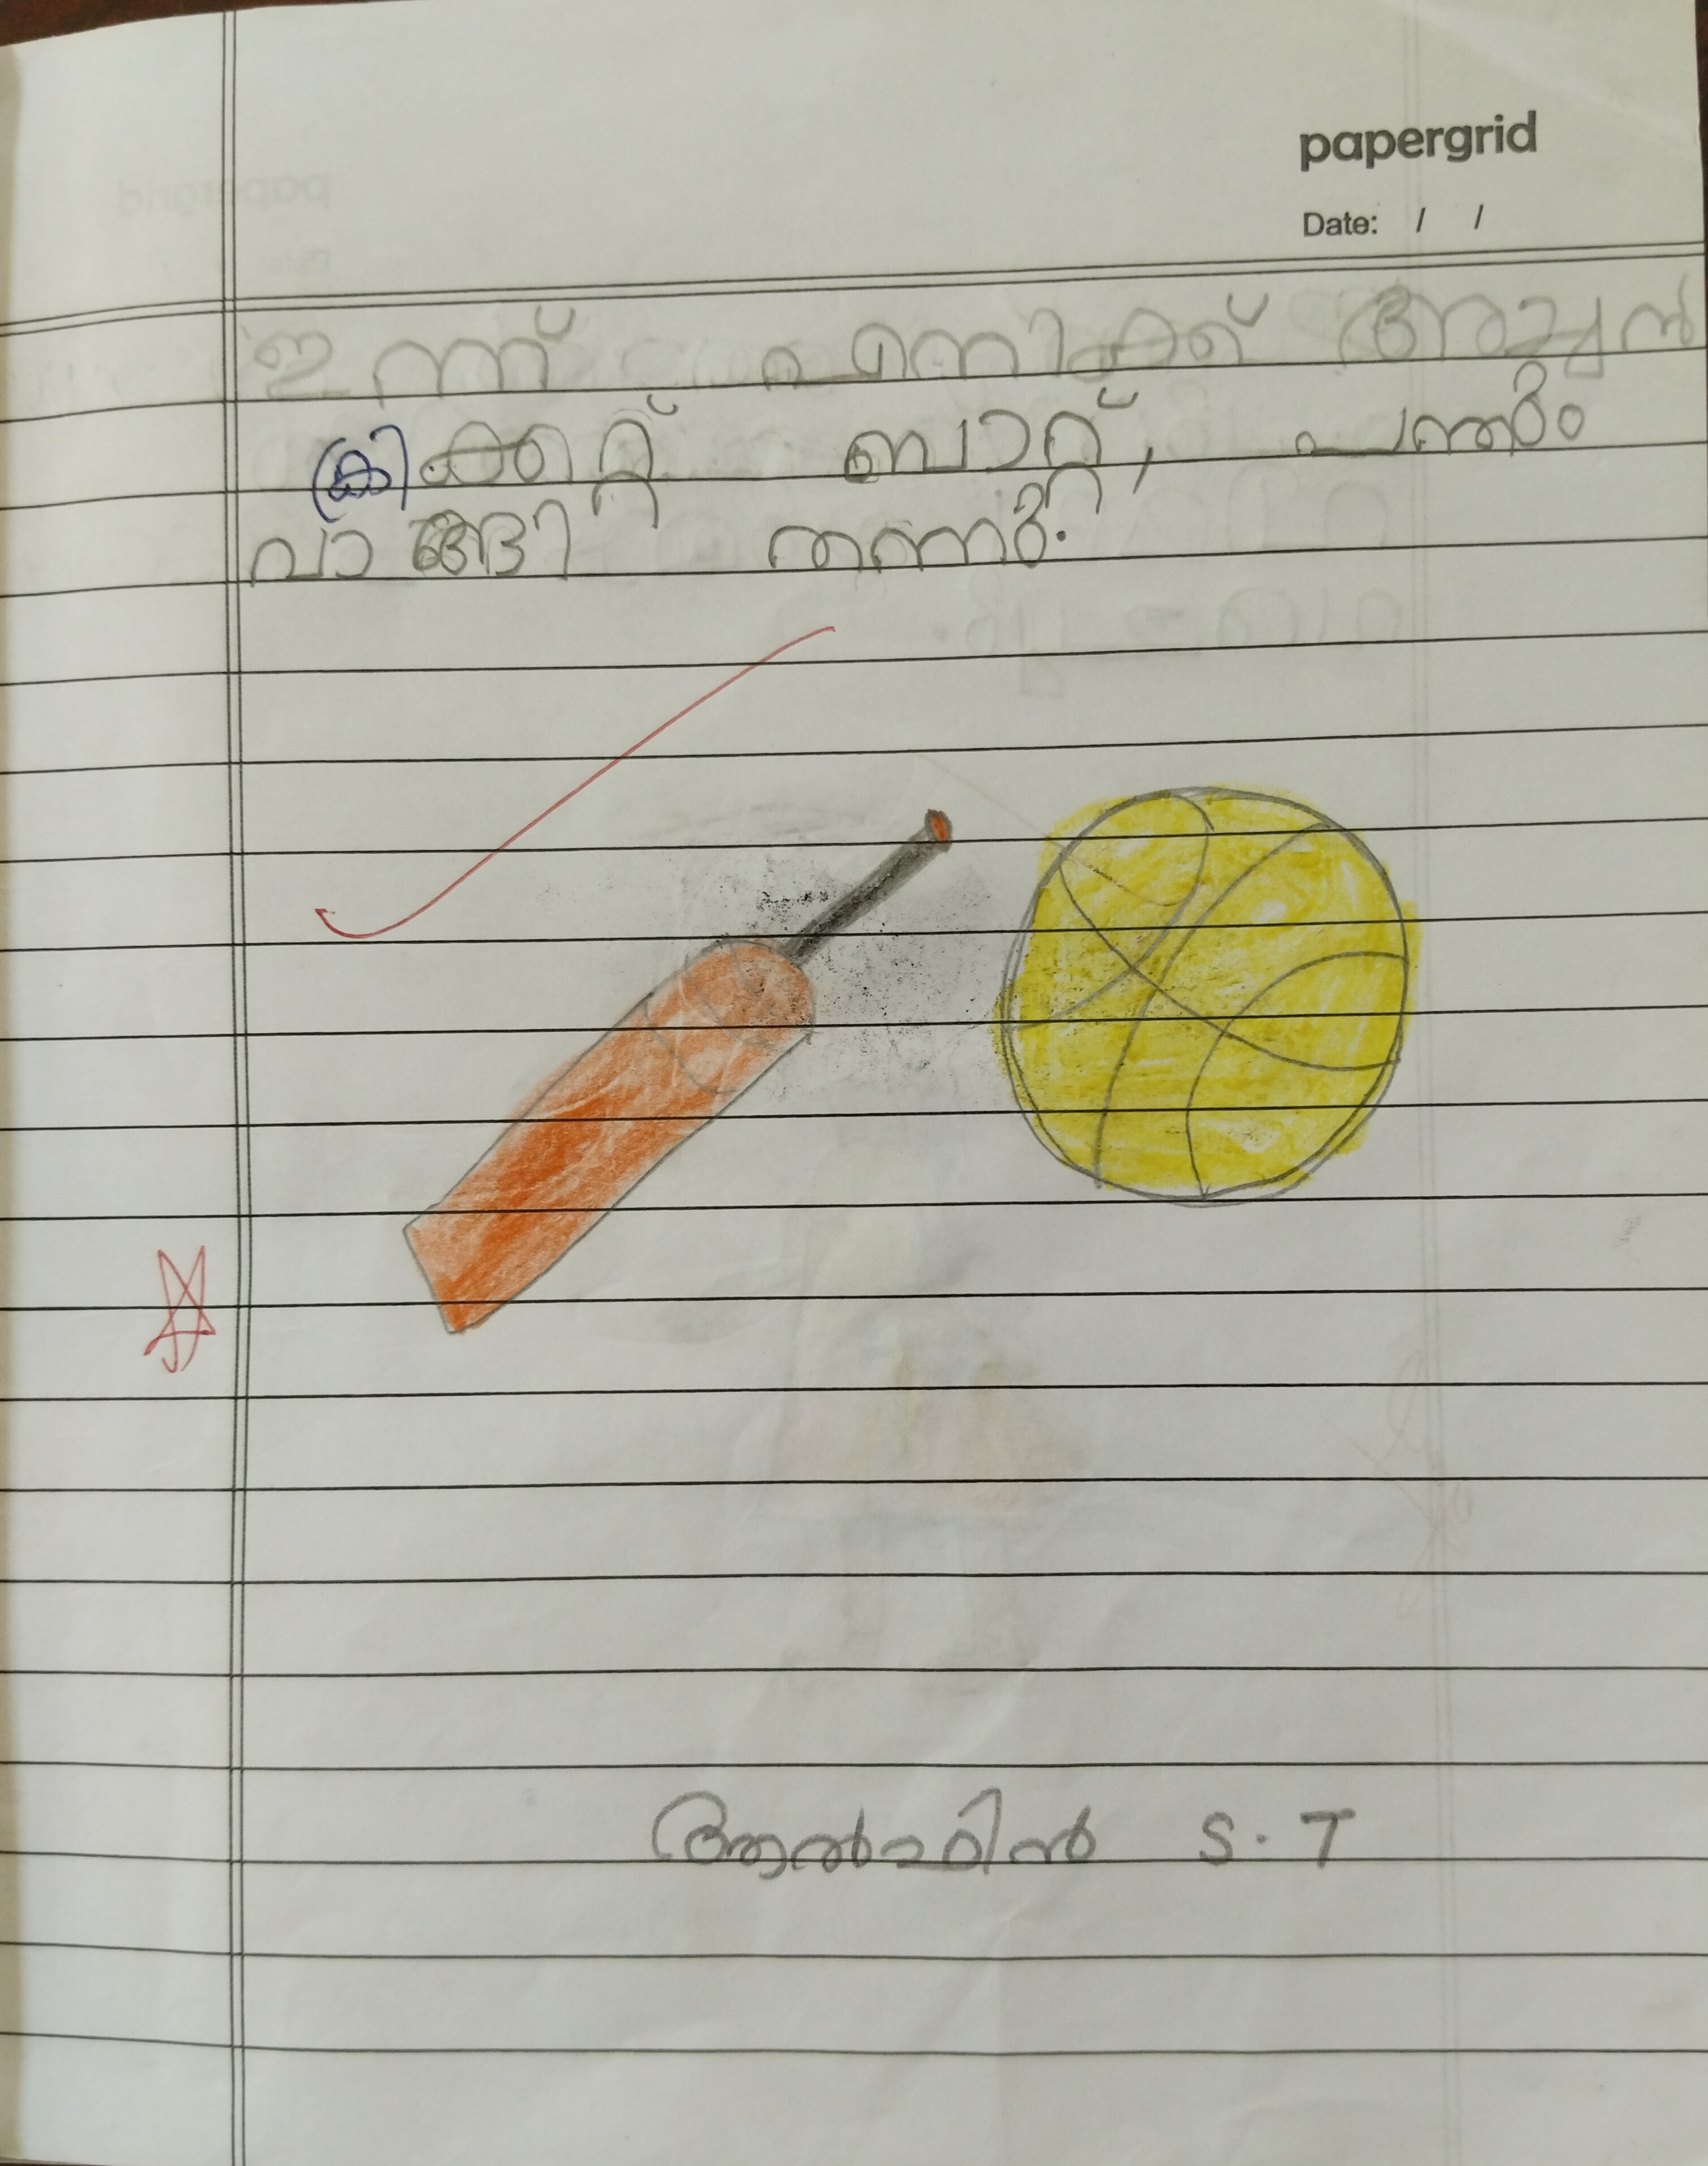 papergrid
Date: / /
ഇന്ന് എനിക്ക് അച്ഛൻ
ക്രിക്കറ്റ് ബാറ്റ്, പന്തും
വാങ്ങി തന്നു.
S. T